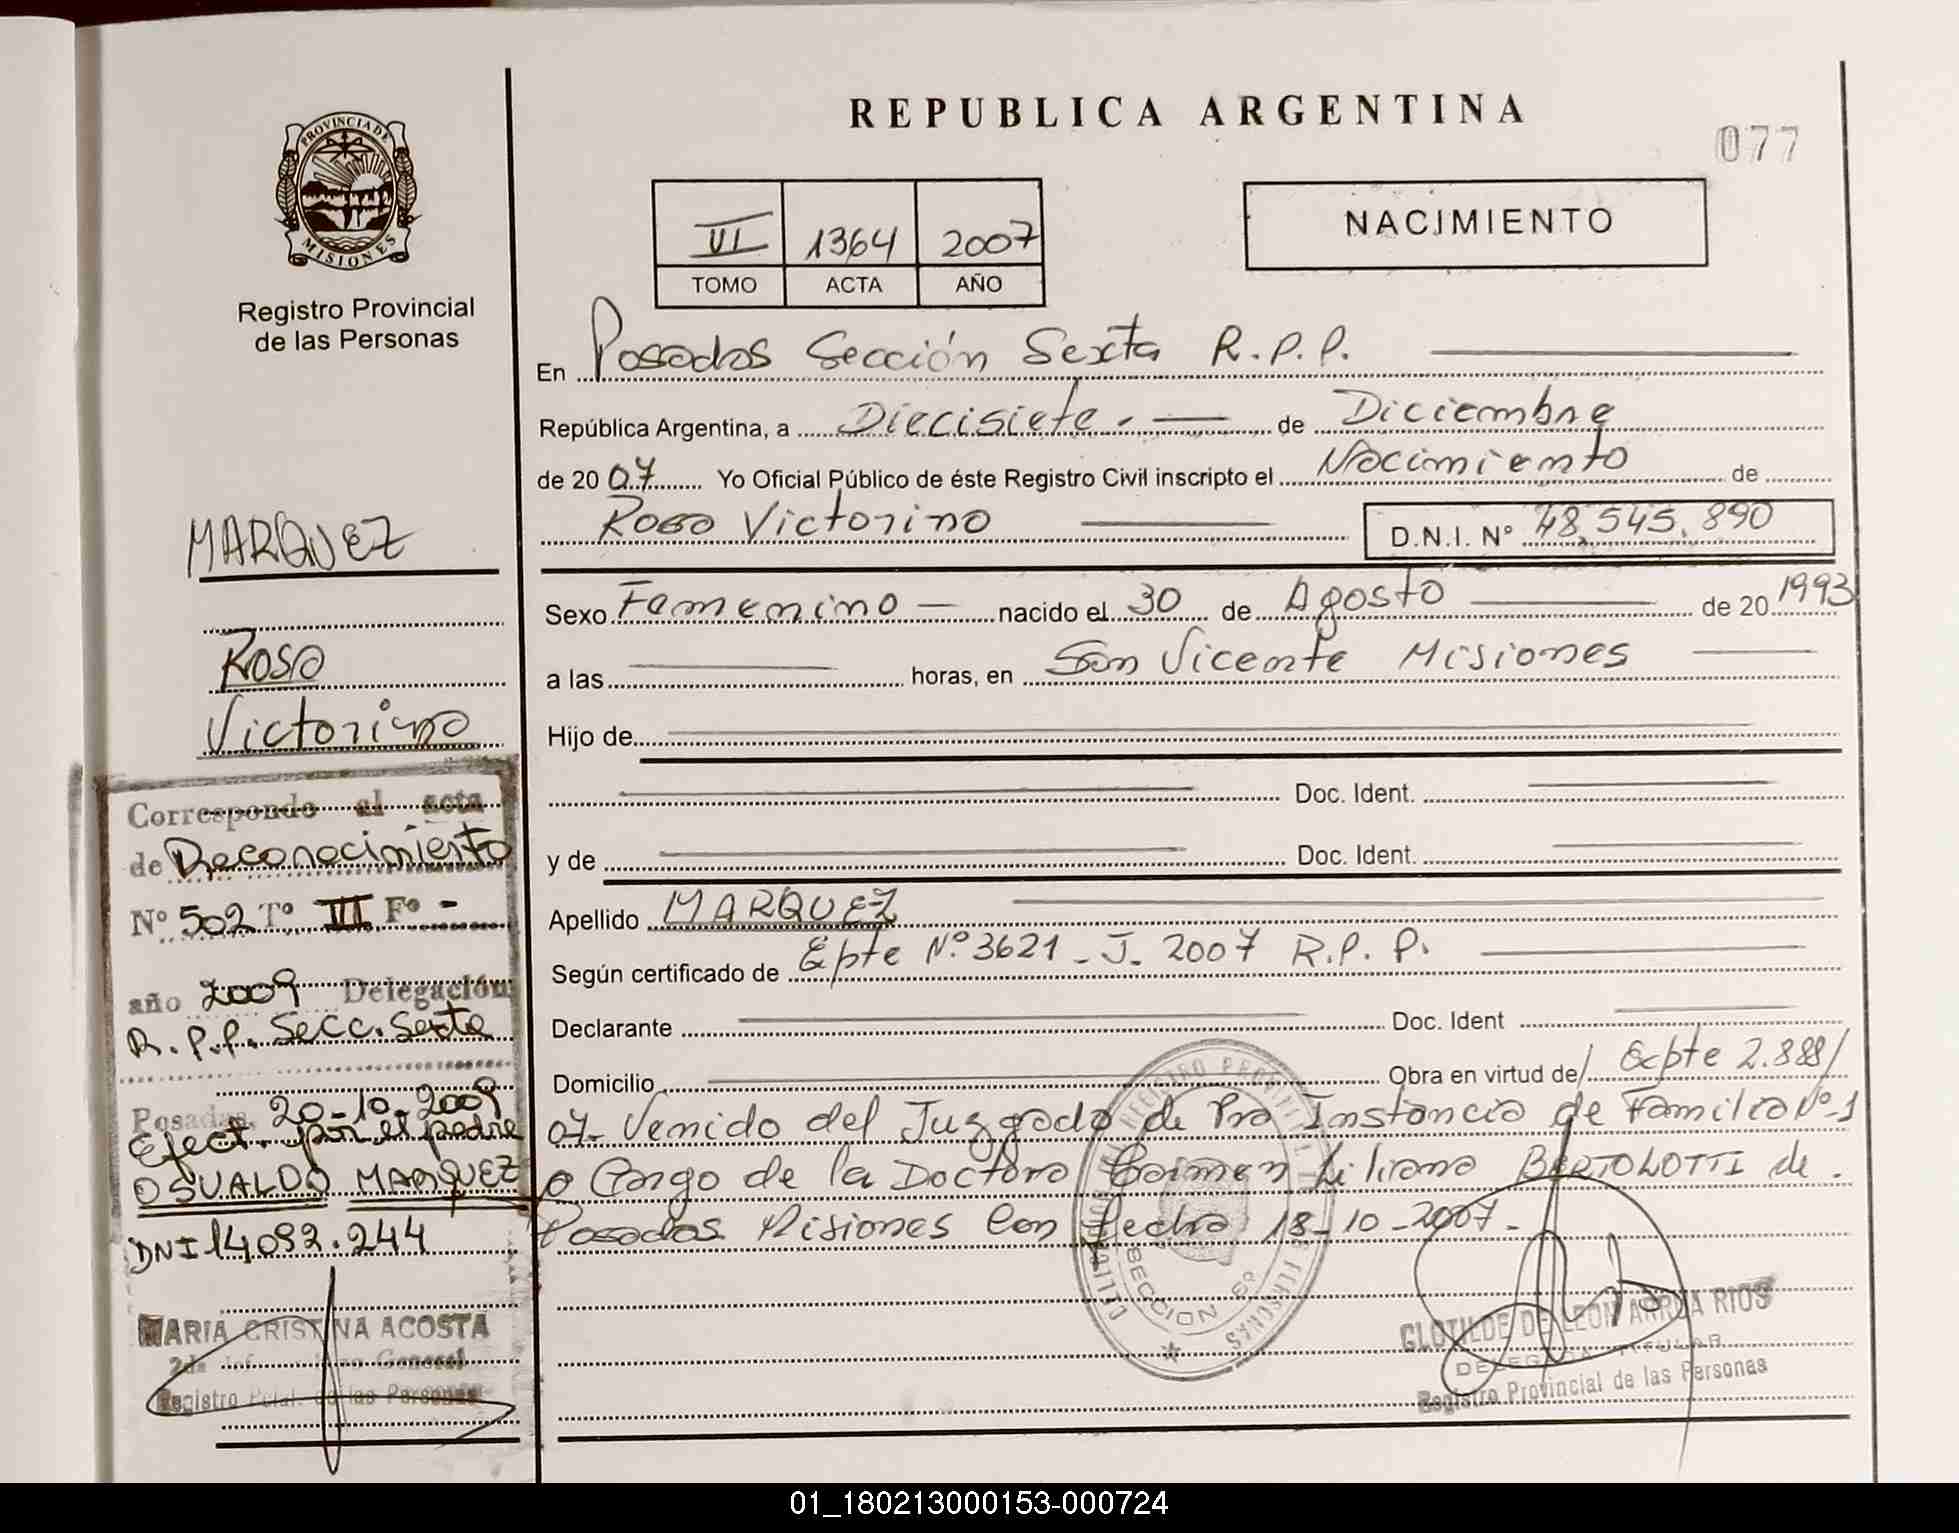 REPUBLICA ARGENTINA
077
PROVINCIA DE
MISIONES
Registro Provincial
de las Personas
VI 1364 2007
TOMO ACTA AÑO
NACIMIENTO
En Posadas Sección Sexta R.P.P.
República Argentina, a Diecisiete.- de Diciembre
de 20 07 Yo Oficial Público de éste Registro Civil inscripto el Nacimiento de
Rosa Victorina D.N.I. Nº 48,545,890
Sexo Femenino nacido el 30 de Agosto de 20 1993
a las horas, en San Vicente Misiones
Hijo de
Doc. Ident.
y de Doc. Ident.
Apellido MARQUEZ
Según certificado de Epte Nº 3621-J-2007 R.P.P.
Declarante Doc. Ident
Domicilio Obra en virtud de/ Expte 2.888/
07- Venido del Juzgado de Pra Instancia de Familia Nº-1
a Cargo de la Doctora Carmen Liliana BERTOLOTTI de.
Posadas Misiones Con fecha 18-10-2007-
SECCION 6º
CLOTILDE DE LEON ARRUA RIOS
DELEGADA TITULAR
Registro Provincial de las Personas
MARQUEZ
Rosa
Victorina
Corresponde al acta
de Reconocimiento
Nº 502 Tº III Fº -
año 2009 Delegación
R.P.P. Secc. Sexta
Posadas, 20-10-2009
Efect. por el padre
OSVALDO MARQUEZ
DNI 14092.244
MARIA CRISTINA ACOSTA
Registro Pcial. de las Personas
01_180213000153-000724